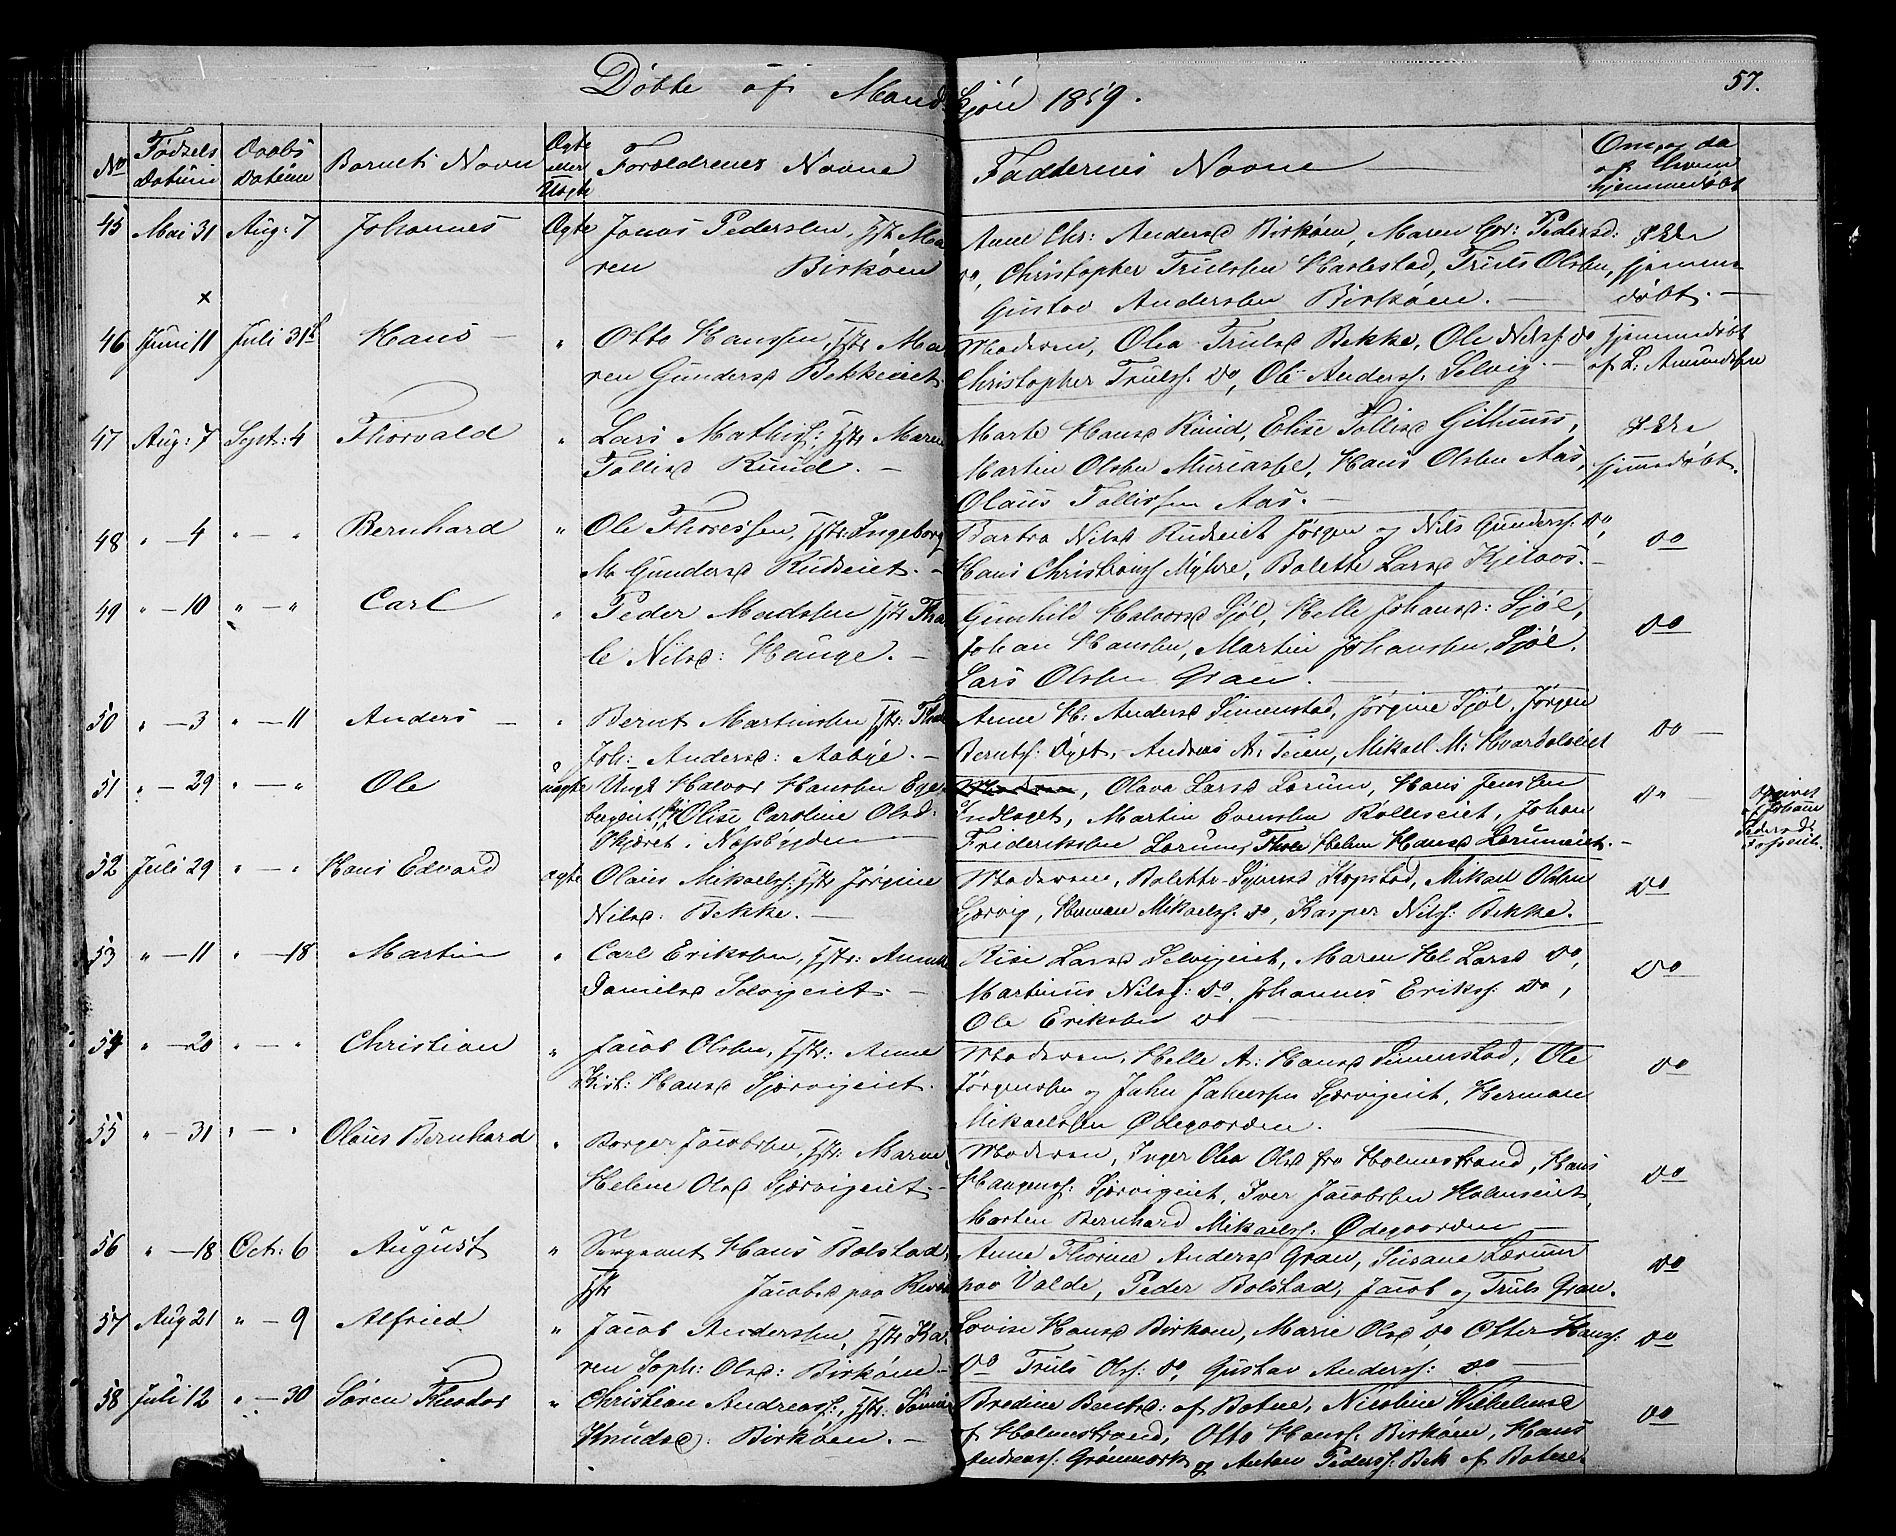 Døbte af Mandkjøn 1859.
57.
No
Fødsels Datum
Daabs Datum
Barnets Navn
Ægte eller Uægte
Forældrenes Navne
Faddernes Navne
Om og da af hvem hjemmedøbt
45 Mai 31 Aug: 7 Johannes Ægte Jonas Pedersen, Hstr Ma
ren Birkøen
Anne Chr: Andersd Birkøen, Maren Gr: Pedersd: Ikke
do, Christopher Trulssen Harlestad, Truls Olsen, hjemme
Gustav Anderssen Birkøen. døbt.
46 Juni 11 Juli 31 Hans " Otto Hanssen, Hstr Ma
ren Gundersd Bekkeeiet.
Moderen, Olea Trulsd Bekke, Ole Nilss: do hjemmedøbt
Christopher Trulss: do, Ole Anderss: Selvig. af L: Amundssen
47 Aug: 7 Sept: 4 Thorvald " Lars Mathiss:, Hstr Maren
Tollisd Ruud.
Marte Hansd Ruud, Elise Tollisd Gilhuus, Ikke
Martin Olsen Muriaasse, Hans Olsen Aas, hjemmedøbt.
Olaus Tollissen Aas.
48 " 4 " " Bernhard " Ole Thoressen, Hstr: Ingeborg
M. Gundersd Rudseiet.
Barbra Nilsd Rudseiet Jørgen og Nils Gunderss: do, do
Hans Christianss Myhre, Bolette Larsd Kjelaas.
49 " 10 " " Carl " Peder Madssen Hstr Tha
le Nilsd: Hauge.
Gunhild Halvorsd Sjøl, Helle Johansd: Sjøl, do
Johan Hanssen, Martin Johanssen, Sjøl.
Lars Olssen Gran.
50 " 3 " 11 Anders " Bernt Martinssen Hstr: Thea
Joh: Andersd: Aabye.
Anne H: Andersd Simenstad, Jørgine Sjøl, Jørgen do
Berntss: Øyet, Andreas A: Teien, Mikael M: Hvardalseiet
51 " 29 " " Ole uægte Ungk Halvor Hanssen Ege
bergeiet Pig Olise Caroline Olsd:
Skjæret i Næsbygden
Moderen, Olava Larsd Lerum, Hans Jenssen do
Indlaget, Martin Evenssen Rolleseiet, Johan
Frideriksen Lerum, Thea Helene Hansd Lerumeiet.
Opgivet af Johanne Pedersd:
52 Juli 29 " " Hans Edvard ægte Olaus Mikaelss: Hstr Jørgine
Nilsd: Bekke.
Moderen, Bolette Syversd Kopstad, Mikael Olssen do
Sjærvig, Herman Mikaelss: do, Kasper Nilss: Bekke.
53 " 11 " 18 Martin " Carl Erikssen, Hstr: Anne
Danielsd Selvigeiet
Risi Larsd Selvigeiet, Maren Hl Larsd do, do
Martinius Nilss: do, Johannes Erikss: do,
Ole Erikssen do
54 " 20 " " Christian " Jacob Olssen, Hstr: Anne
Kirst: Hansd Sjærvigeiet.
Moderen, Helle A: Hansd Simenstad, Ole do
Jørgenssen og John Johnssen Sjærvigeiet, Herman
Mikaelssen Ødegaarden.
55 " 31 " " Olaus Bernhard " Borger Jacobssen, Hstr: Maren
Helene Olsd Sjærvigeiet.
Moderen, Inger Olea Olsd fra Holmestrand, Hans do
Haagenss: Sjærvigeiet, Iver Jacobssen Holmseiet,
Morten Bernhard Mikaelss: Ødegaarden
56 " 18 Oct: 6 August " Sergeant Hans Bolstad,
Hstr Jacobsd paa
Anne Thorine Andersd Gran, Susane Lærum do
paa Valde, Peder Bolstad, Jacob og Truls Gran.
57 Aug 21 " 9 Alfried " Jacob Anderssen, Hstr Ka
ren Soph: Olsd: Birkøen
Lovise Hansd Birkøen, Marie Olsd do Otter Hanss: do
do Truls Olss: do, Gustav Anderss: do.
58 Juli 12 " 30 Søren Theodor " Christian Andreass:, Hstr:
Knudsd: Birkøen.
Bredine Berntsd: af Botne, Nicoline Wilhelmsd do
af Holmestrand, Otto Hanss: Birkøen, Hans
Andreass: Grønmørk og Anton Pederss: Bek af Botne